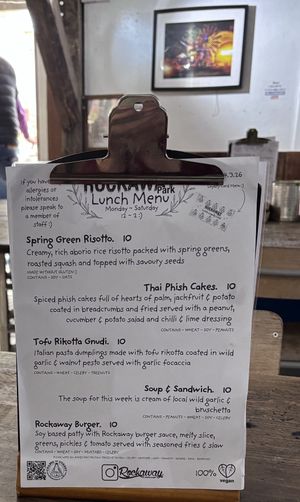 ROCKAWAY
Park
Lunch Menu
Monday - Saturday
12 - 2:30
If you have
allergies or
intolerances
please speak to
a member of
staff :)
Spring Green Risotto. 10
Creamy, rich aborio rice risotto packed with spring greens,
roasted squash and topped with savoury seeds
MADE WITHOUT GLUTEN :)
CONTAINS - SOY - OATS
Thai Phish Cakes. 10
Spiced phish cakes full of hearts of palm, jackfruit & potato
coated in breadcrumbs and fried served with a peanut,
cucumber & potato salad and chilli & lime dressing
CONTAINS - WHEAT - SOY - PEANUTS
Tofu Rikotta Gnudi. 10
Italian pasta dumplings made with tofu rikotta coated in wild
garlic & walnut pesto served with garlic focaccia
CONTAINS - WHEAT - CELERY - TREENUTS
Soup & Sandwich. 10
The soup for this week is cream of local wild garlic &
bruschetta
CONTAINS - PEANUTS - WHEAT - SOY
Rockaway Burger. 10
Soy based patty with Rockaway burger sauce, melty slice,
greens, pickles & tomato served with seasoned fries & slow
CONTAINS - WHEAT - SOY - MUSTARD - CELERY
Rockaway
100%
vegan